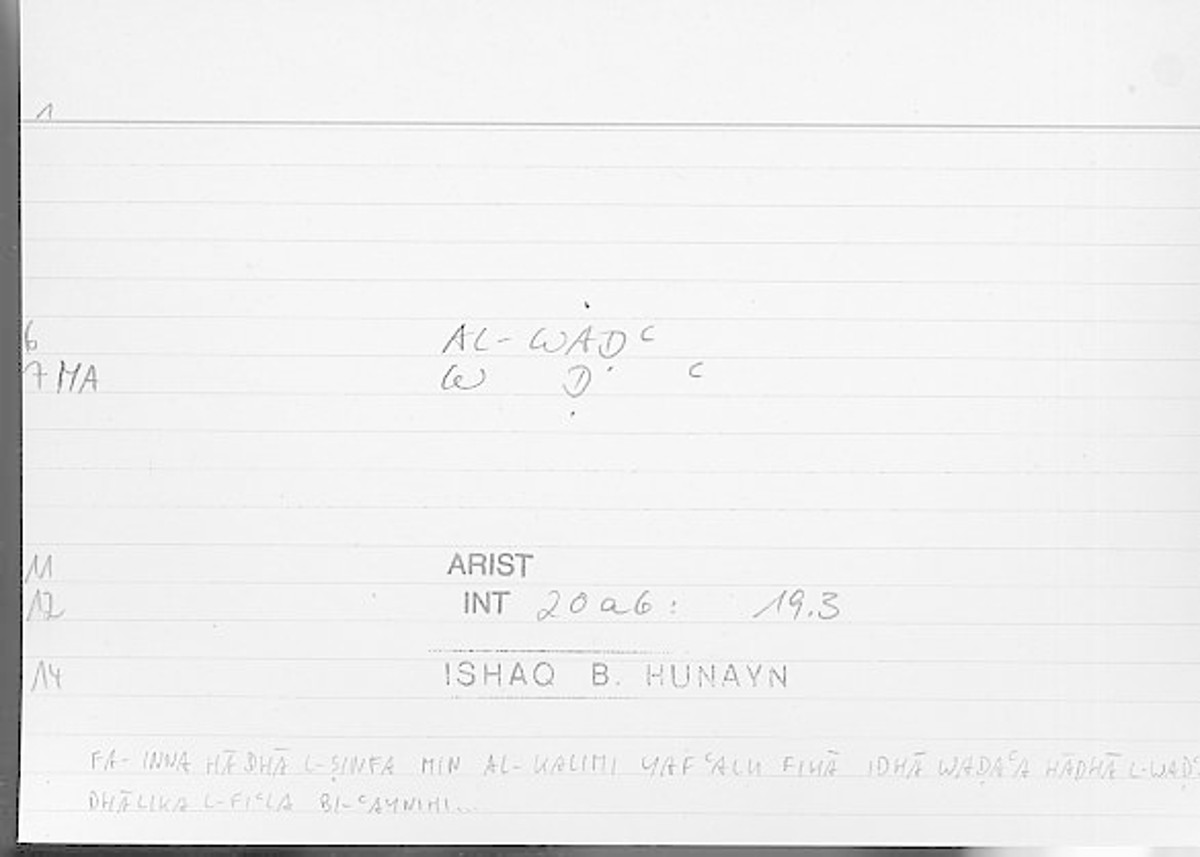 1
6 AL-WAḌʿ
7 MA W Ḍ ʿ
11 ARIST
12 INT 20a6: 19.3
14 ISHAQ B. HUNAYN
FA-INNA HĀDHĀ L-ṢINFA MIN AL-KALIMI YAFʿALU FIHĀ IDHĀ WAḌAʿA HĀDHĀ L-WAḌʿ
DHĀLIKA L-FIʿLA BI-ʿAYNIHI...